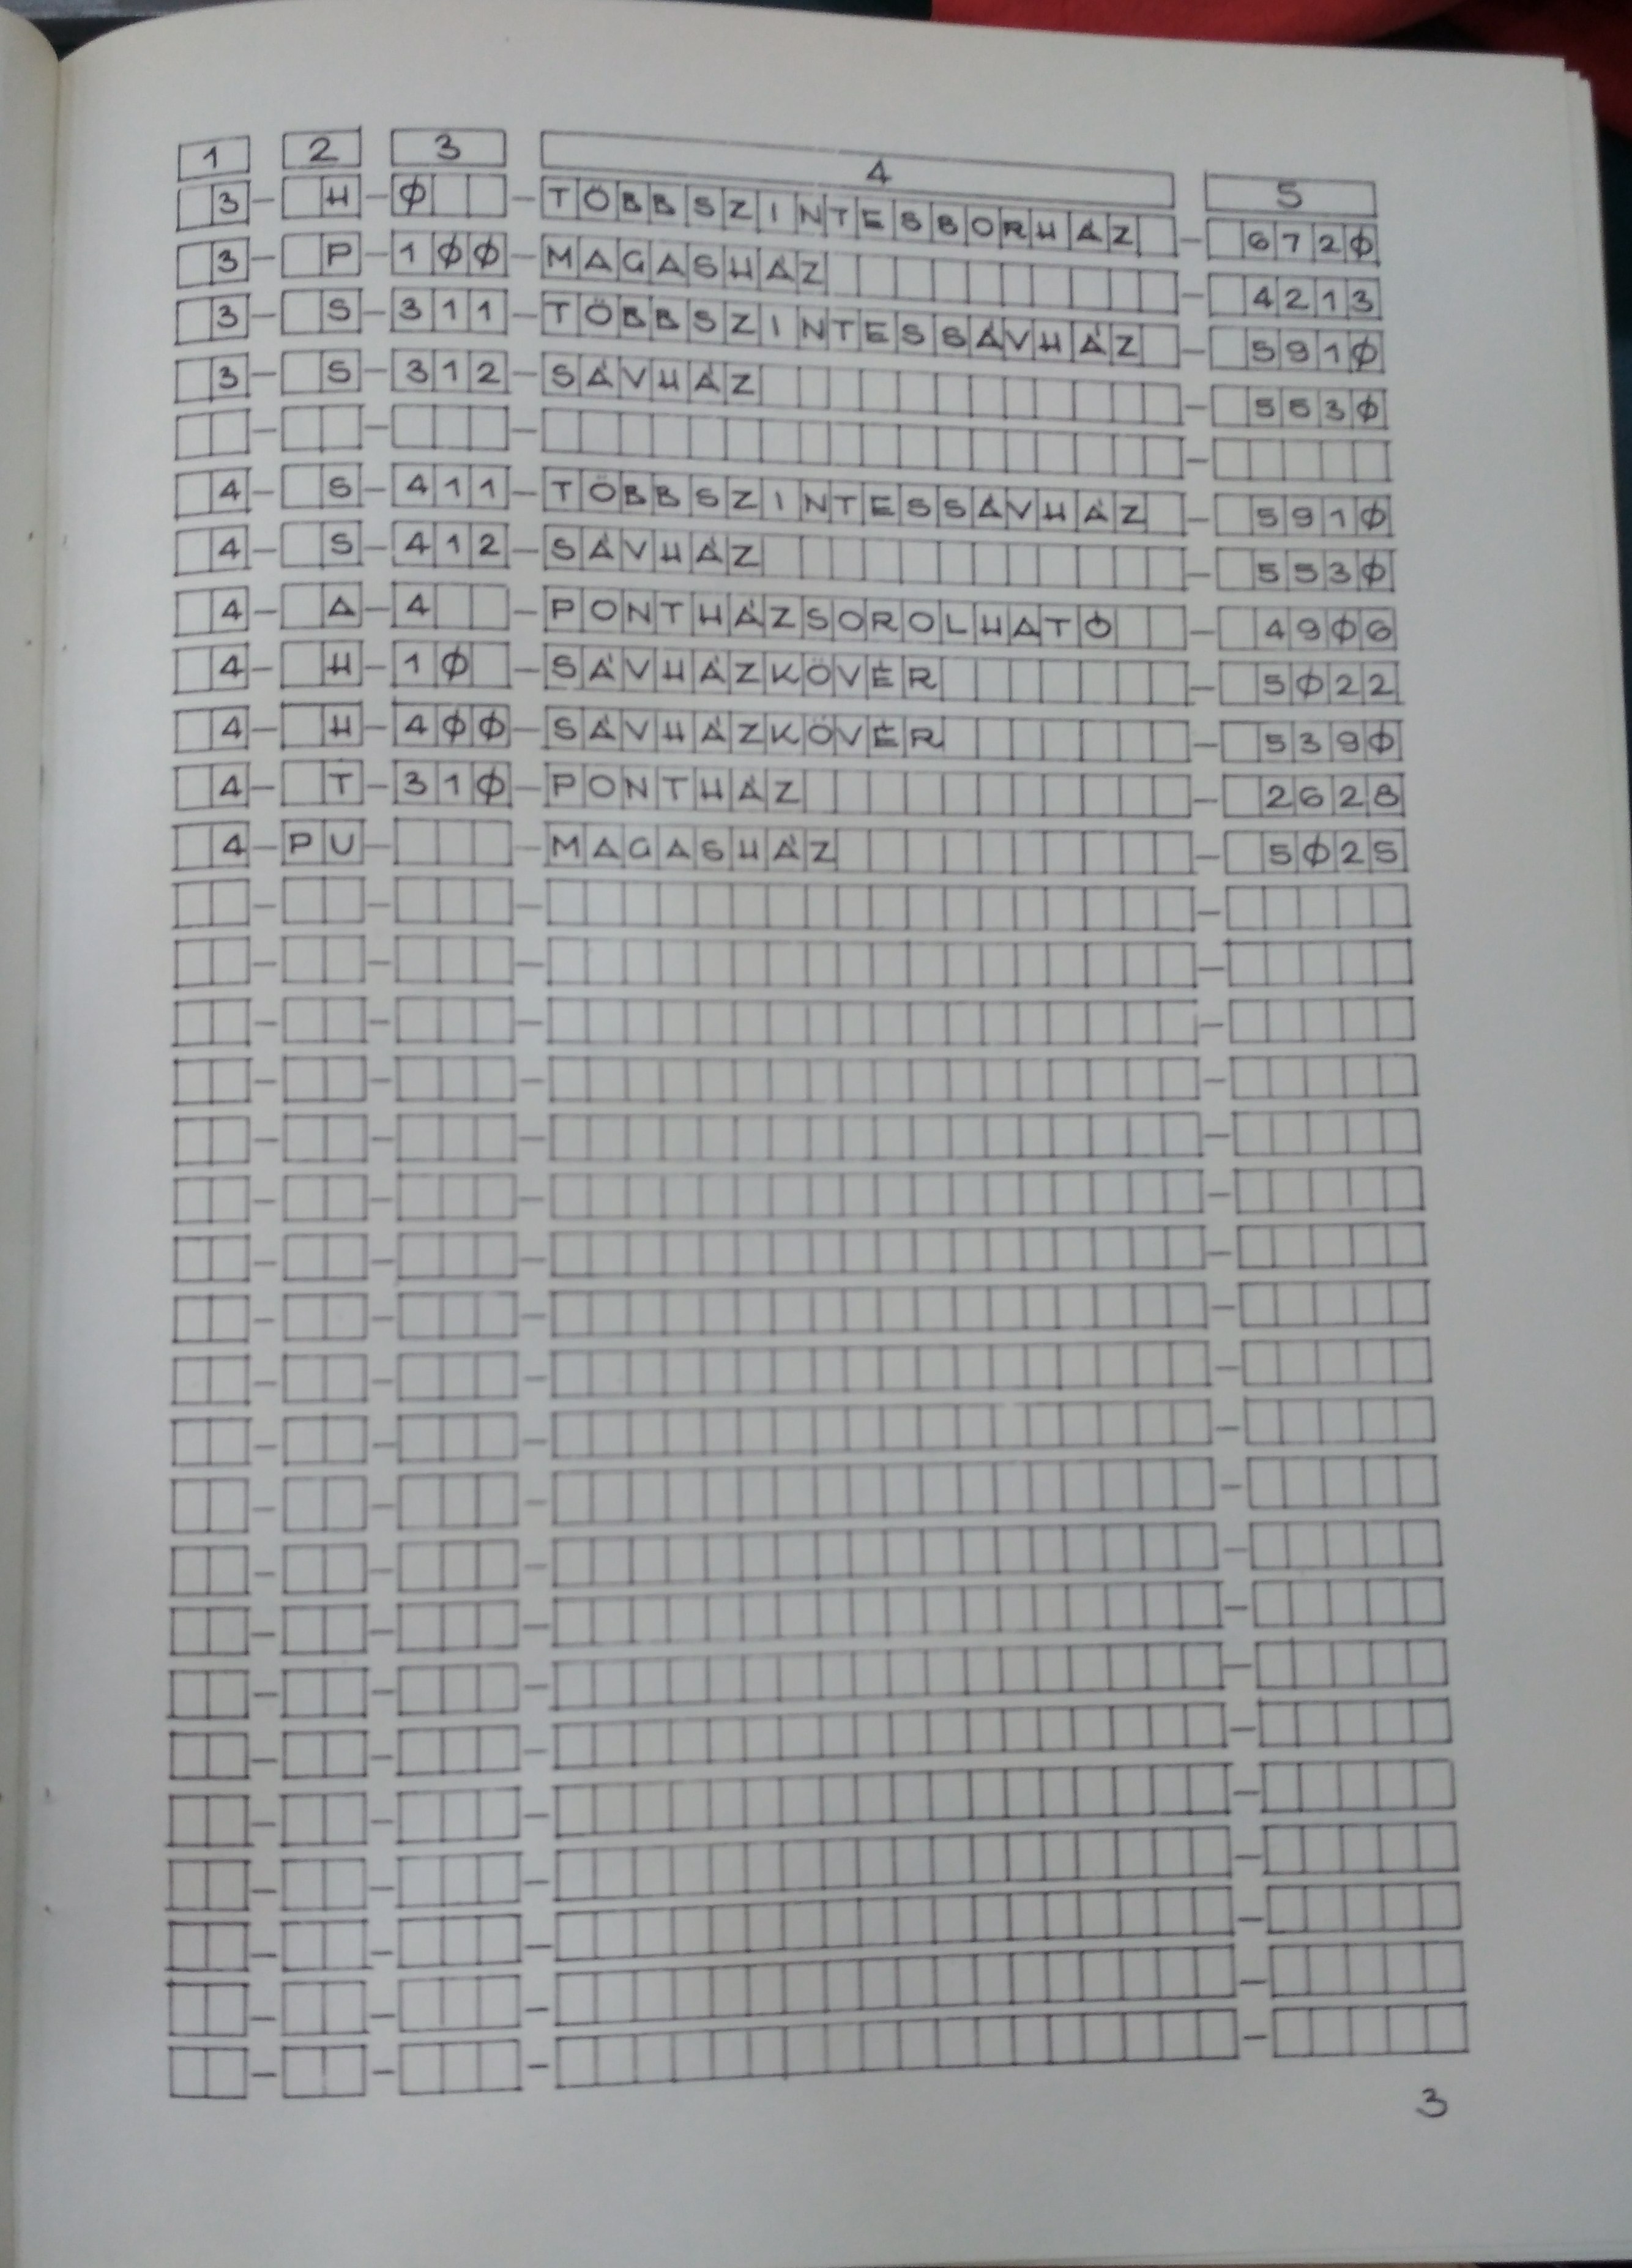 1 2 3 4 5
3 - H - Ø - TÖBBSZINTESSORHÁZ - 672Ø
3 - P - 1ØØ - MAGASHÁZ - 4213
3 - S - 311 - TÖBBSZINTESSÁVHÁZ - 591Ø
3 - S - 312 - SÁVHÁZ - 553Ø
4 - S - 411 - TÖBBSZINTESSÁVHÁZ - 591Ø
4 - S - 412 - SÁVHÁZ - 553Ø
4 - A - 4 - PONTHÁZSOROLHATÓ - 49Ø6
4 - H - 1Ø - SÁVHÁZKÖVÉR - 5Ø22
4 - H - 4ØØ - SÁVHÁZKÖVÉR - 539Ø
4 - T - 31Ø - PONTHÁZ - 2628
4 - PU - - MAGASHÁZ - 5Ø25
3